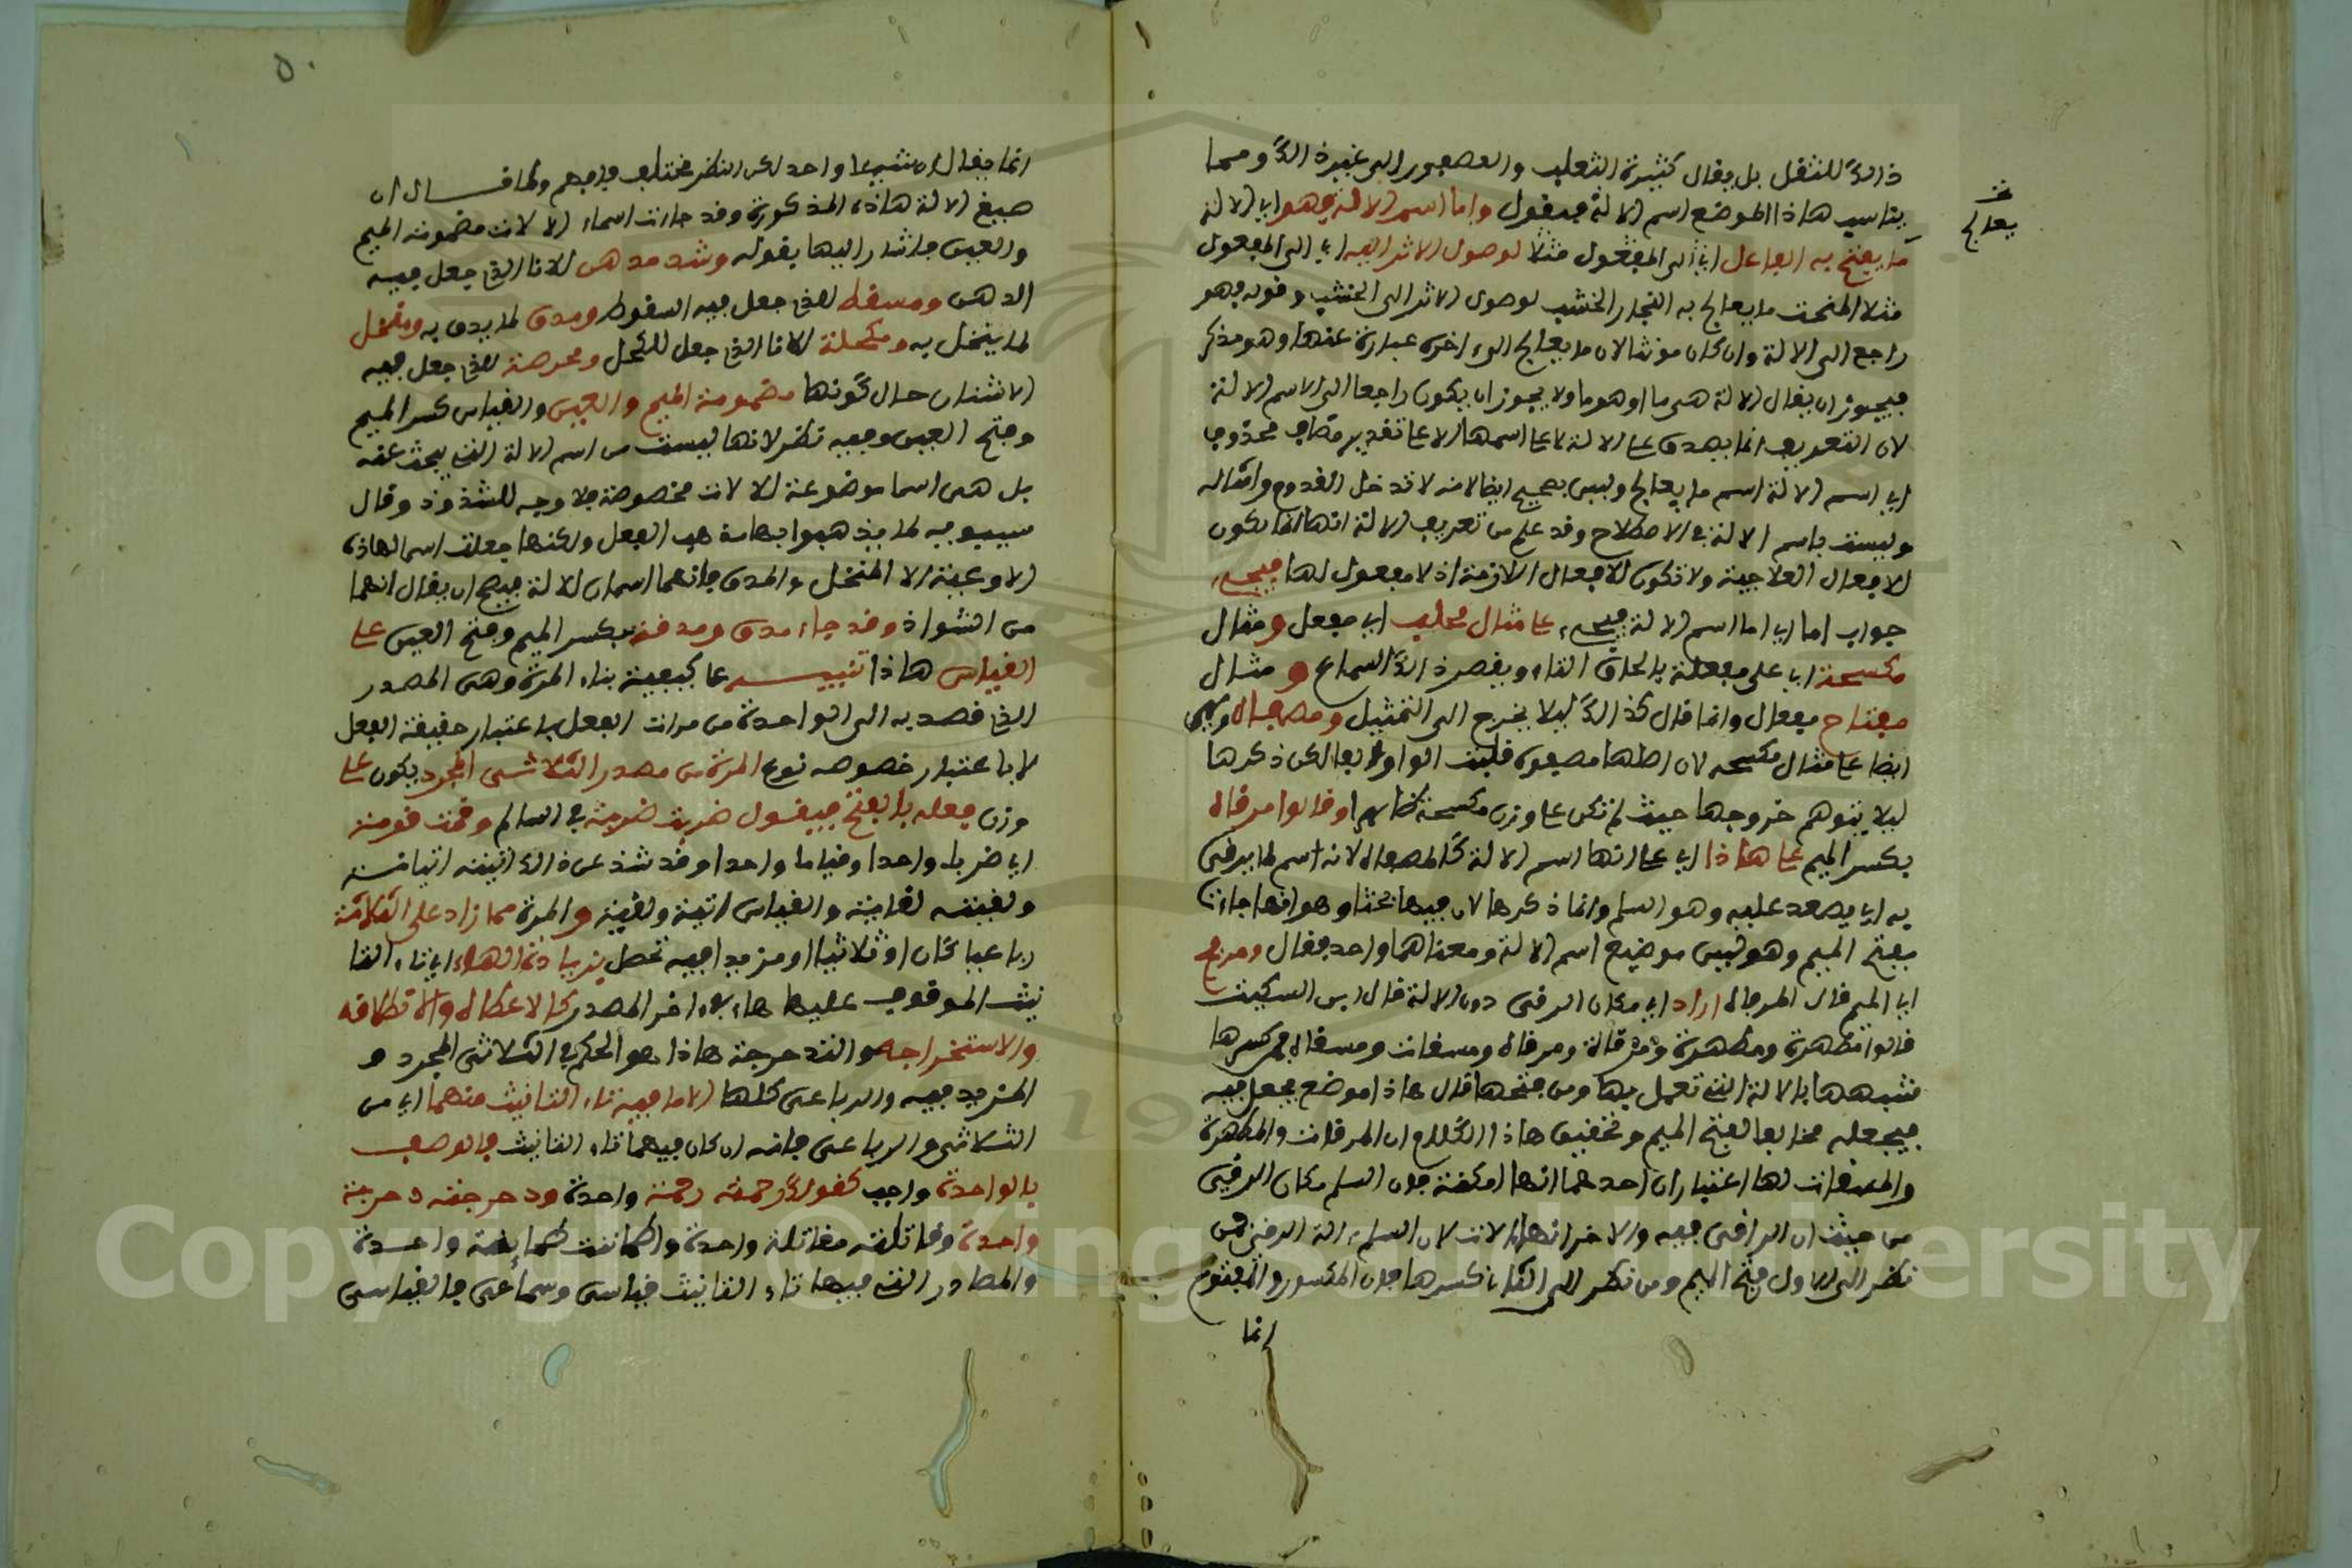 ذالك للثقل بل يقال كثيرة الثعلب والعصفور الى غير ذالك ومما
يناسب هاذا الموضع اسم الالة فيقول واما اسم الالة فهو اي الالة
ما يعالج به الفاعل اي الى المفعول مثلا لوصول الاثر اليه اي الى المفعول
مثلا المنحت ما يعالج به النجار الخشب لوصول الاثر الى الخشب وقوله فهو
راجع الى الالة وان كان مونثا لان ما يعالج الى اخره عبارة عنها وهو مذكر
فيجوز ان يقال الالة هي ما او هو ما ولا يجوز ان يكون راجعا الى الاسم الالة
لان التعريف انما يصدق على الالة لا على اسمها الا على تقدير مضاف محذوف
اي اسم الالة اسم ما يعالج وليس بصحيح ايضا لانه لا تدخل القدوم وامثاله
وليست باسم الالة في الاصطلاح وقد علم من تعريف الالة انها انما تكون
للافعال العلاجية ولا تكون للافعال اللازمة اذ لا مفعول لها فيجيء
جواب اما اي اما اسم الالة فيجيء على مثال محلب اي مفعل ومثال
مكسحة اي على مفعلة بالحاق التاء ويقصر ذالك السماع ومثال
مفتاح مفعال وانما قال كذالك ليلا يخرج الى التمثيل ومصفاة وهي
ايضا على مثال مكسحه لان اصلها مصفوة قلبت الواو الفا لكن ذكرها
ليلا يتوهم خروجها حيث لم تكن على وزن مكسحة ظاهرا وقالوا مرقاة
بكسر الميم على هاذا اي على انها اسم الالة كالمصفاة لانه اسم لما يرقى
به اي يصعد عليه وهو السلم وانما ذكرها لان فيها بحثا وهو انها جاءت
بفتح الميم وهو ليس موضع اسم الالة ومعناهما واحد فقال ومن فتح
اي الميم فقال المرقاة اراد اي مكان الرقي دون الالة قال ابن السكيت
قالوا مطهرة ومطهرة ومرقاة ومرقاة ومسقات ومسقاة فمن كسرها
شبهها بالالة التي تعمل بها ومن فتحها قال هاذا موضع يجعل فيه
فيجعله مخالفا لفتح الميم وتحقيق هاذا الكلام ان المرقات والمطهرة
والمسقات لها اعتباران احدهما انها امكنة فان السلم مكان الرقي
من حيث ان الراقي فيه والاخر انها الات لان السلم الة الرقي فمن
نظر الى الاول فتح الميم ومن نظر الى الثاني كسرها فان المكسور والمفتوح
انما
يعالج
٥٠
انما يقال ان شييا واحد لكن النظر مختلف فافهم ولما قال ان
صيغ الالة هاذه المذكورة وقد جاءت اسماء الالات مضمومة الميم
والعين فاشار اليها بقوله وشذ مدهن للاناء الذي جعل فيه
الدهن ومسقط للذي جعل فيه السقوط ومدق لما يدق به ومنخل
لما ينخل به ومكحلة للاناء الذي جعل للكحل ومحرضة للذي جعل فيه
الاشنان حال كونها مضمومة الميم والعين والقياس كسر الميم
وفتح العين وفيه نظر لانها ليست من اسم الالة الذي يبحث عنه
بل هي اسما موضوعة لالات مخصوصة فلا وجه للشذوذ وقال
سيبويه لم يذهبوا بها مذهب الفعل ولكنها جعلت اسما لهاذه
الاوعية الا المنخل والمدق فانهما اسمان للالة فيصح ان يقال انهما
من الشواذ وقد جاء مدق ومدقة بكسر الميم وفتح العين على
القياس هاذا تنبيه على كيفية بناء المرة وهي المصدر
الذي قصد به الى الواحدة من مرات الفعل باعتبار حقيقة الفعل
لا باعتبار خصوصه نوع المرة من مصدر الثلاثي المجرد يكون على
وزن فعله بالفتح فيقول ضربت ضربة في السالم وقمت قومة
اي ضربا واحدا وقياما واحدا وقد شذ عن ذالك اتيته اتيانة
ولقيته لقاية والقياس اتية ولقية والمرة مما زاد على الثلاثة
رباعيا كان او ثلاثيا او مزيدا فيه تحصل بزيادة الهاء اي تاء التا
نيث الموقوف عليها هاء في اخر المصدر كالاعطاة والانطلاقه
والاستخراجه والتدحرجة هاذا هو الحكم في الثلاثي المجرد و
المزيد فيه والرباعي كلها الا ما فيه تاء التانيث منهما اي من
الثلاثي والرباعي فانه ان كان فيهما تاء التانيث فالوصف
بالواحدة واجب كقولك رحمته رحمة واحدة ودحرجته دحرجة
واحدة وقاتلته مقاتلة واحدة واطماننت طمانينة واحدة
والمصادر التي فيها تاء التانيث قياسي وسماعي فالقياسي